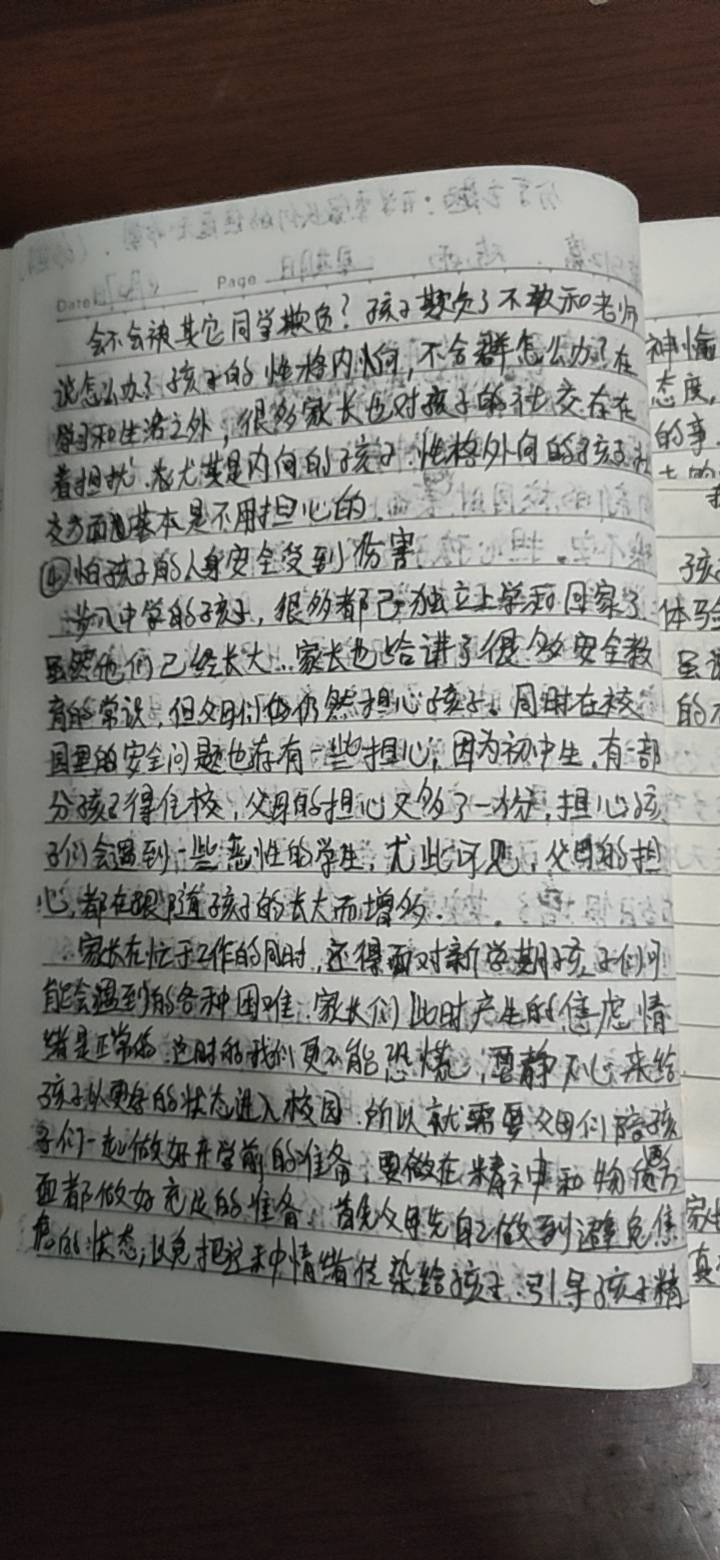 Date Page
会不会被其它同学欺负？孩子欺负了不敢和老师
说怎么办？孩子的性格内向，不合群怎么办？在
学习和生活之外，很多家长也对孩子的社交存在
着担扰，尤其是内向的孩子，性格外向的孩子社
交方面基本是不用担心的．
④怕孩子的人身安全受到伤害
步入中学的孩子，很多都已独立上学和回家了
虽然他们已经长大，家长也给讲了很多安全教
育的常识，但父母们仍然担心孩子。同时在校
园里的安全问题也存有一些担心，因为初中生，有一部
分孩子得住校，父母的担心又多了一份，担心孩
子们会遇到一些恶性的学生，尤此可见，父母的担
心，都在跟随孩子的长大而增多．
家长在忙于工作的同时，还得面对新学期孩子们可
能会遇到的各种困难，家长们此时产生的焦虑情
绪是正常的，这时的我们更不能恐慌，要静下心来给
孩子以更好的状态进入校园．所以就需要父母们陪孩
子们一起做好开学前的准备，要做在精神和物质方
面都做好充足的准备，首先父母先自己做到避免焦
虑的状态，以免把这种情绪传染给孩子，引导孩子精
神愉
态度，
的事
孩子
体验
虽说
的不
家长
真